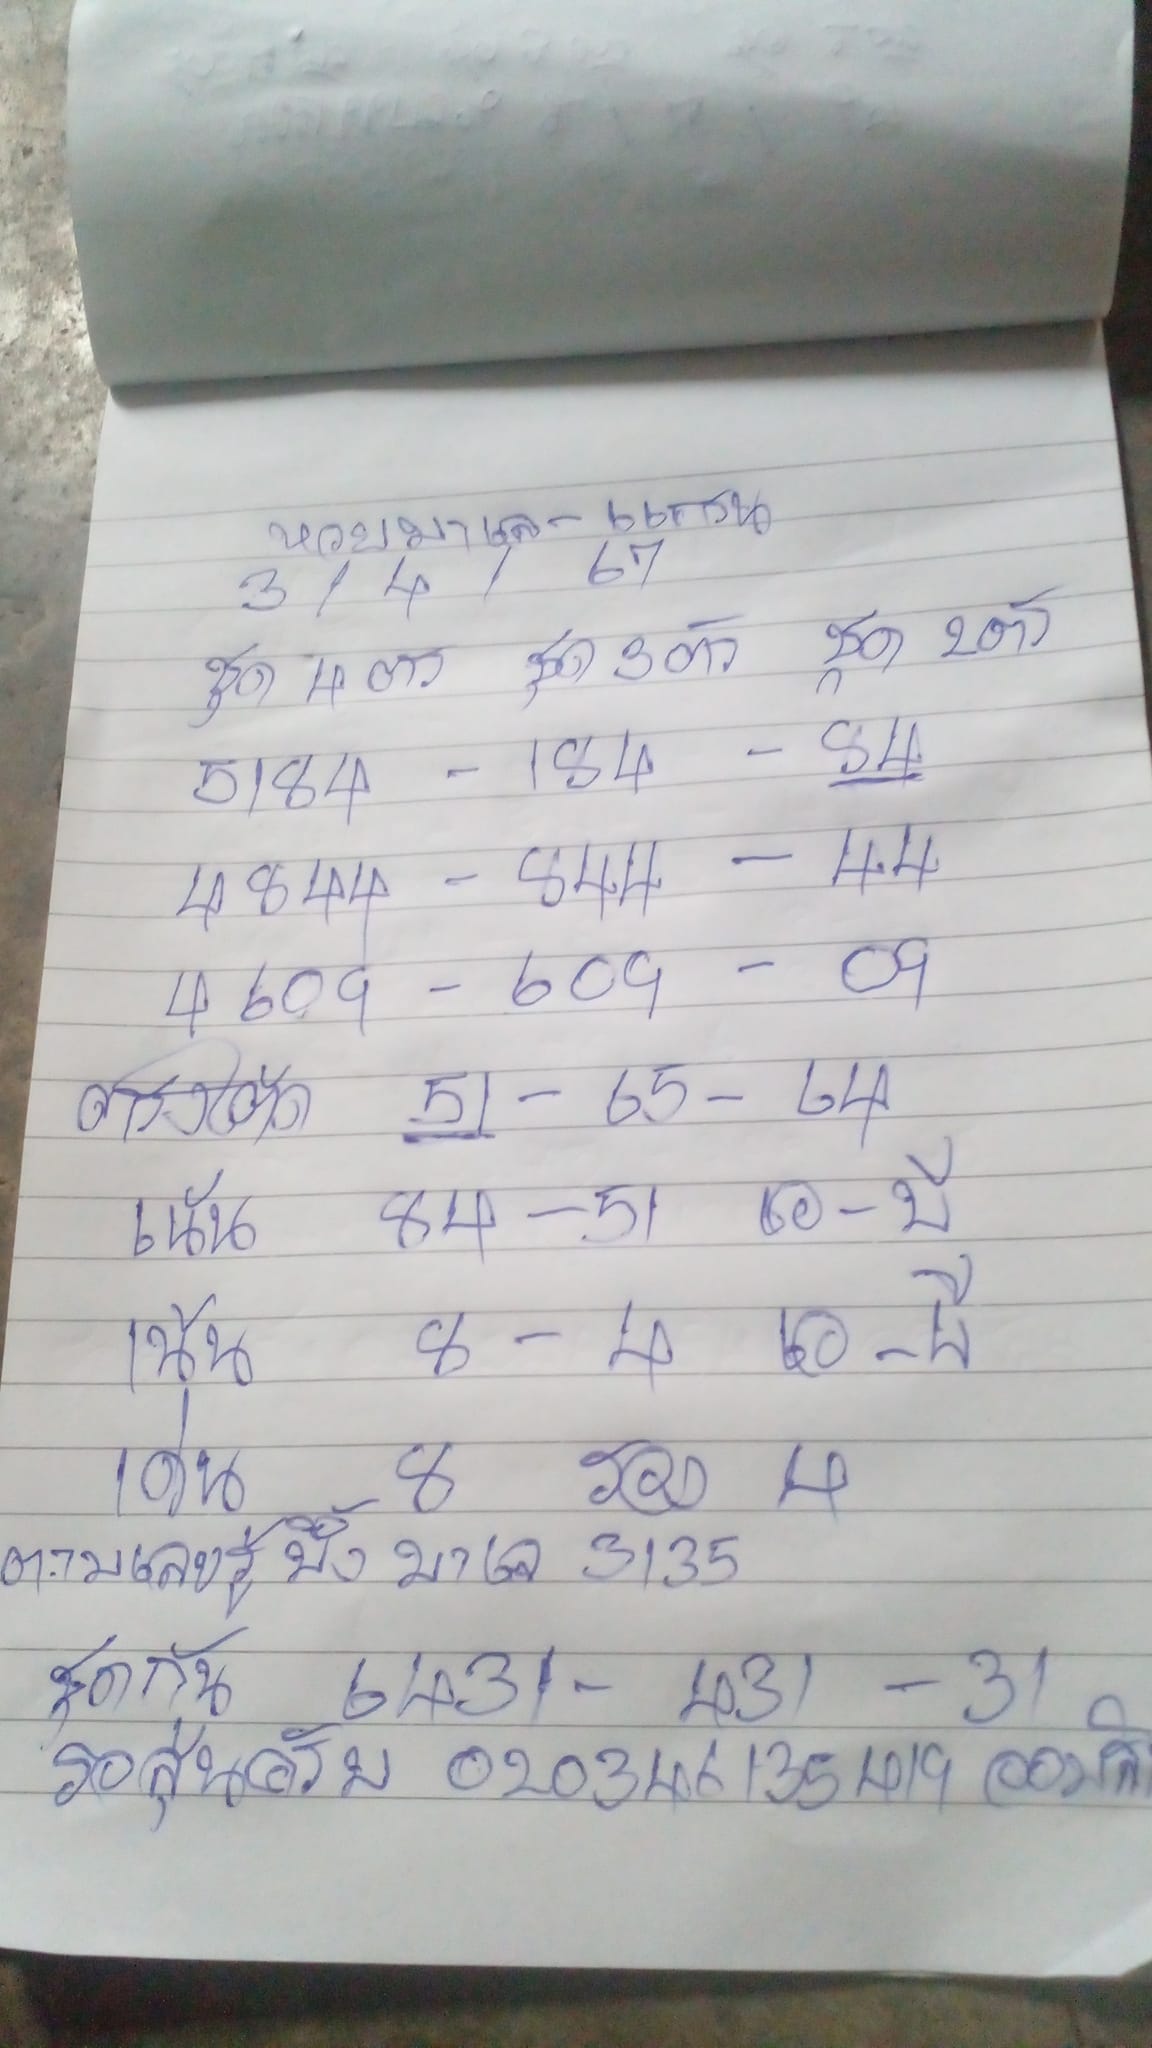 หวยมาเล - แกรน
3 / 4 / 67
ชุด 4 ตัว ชุด 3 ตัว ชุด 2 ตัว
5184 - 184 - 84
4844 - 844 - 44
4609 - 609 - 09
51 - 65 - 64
เน้น 84 - 51 เอ - บี
เน้น 8 - 4 เอ - บี
เด่น 8 รอง 4
ตามเลขรู้ มาเล 3135
ชุดกัน 6431 - 431 - 31
รอลุ้นครับ 020346135419 ออมสิ